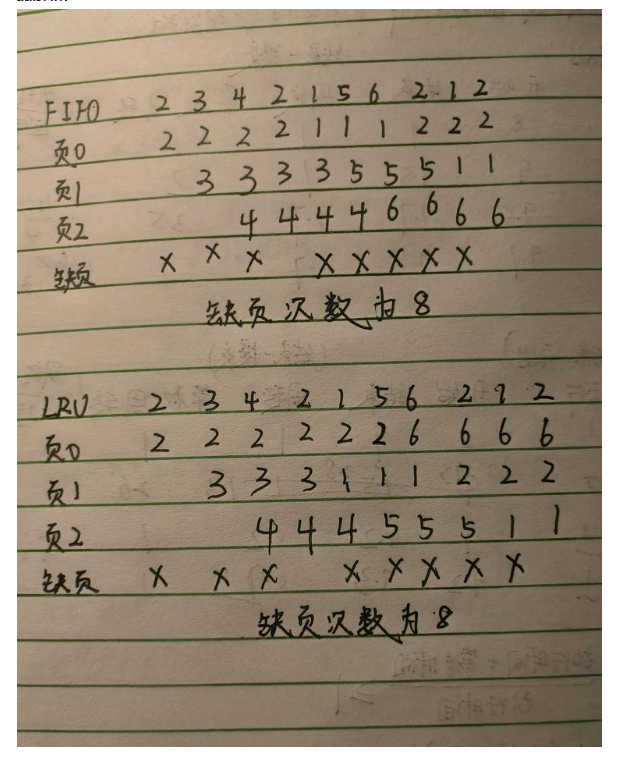 FIFO 2 3 4 2 1 5 6 2 1 2
页0 2 2 2 2 1 1 1 2 2 2
页1 3 3 3 3 5 5 5 1 1
页2 4 4 4 4 6 6 6 6
缺页 × × × × × × × ×
缺页次数为8
LRU 2 3 4 2 1 5 6 2 1 2
页0 2 2 2 2 2 2 6 6 6 6
页1 3 3 3 1 1 1 2 2 2
页2 4 4 4 5 5 5 1 1
缺页 × × × × × × × ×
缺页次数为8